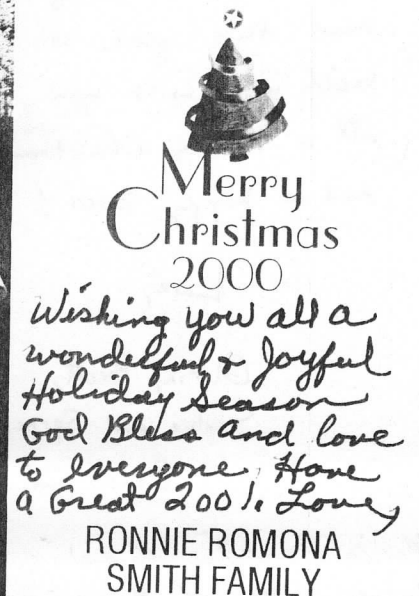 Merry
Christmas
2000
Wishing you all a
wonderful & Joyful
Holiday Season
God Bless and love
to everyone. Have
a Great 2001. Love,
RONNIE ROMONA
SMITH FAMILY